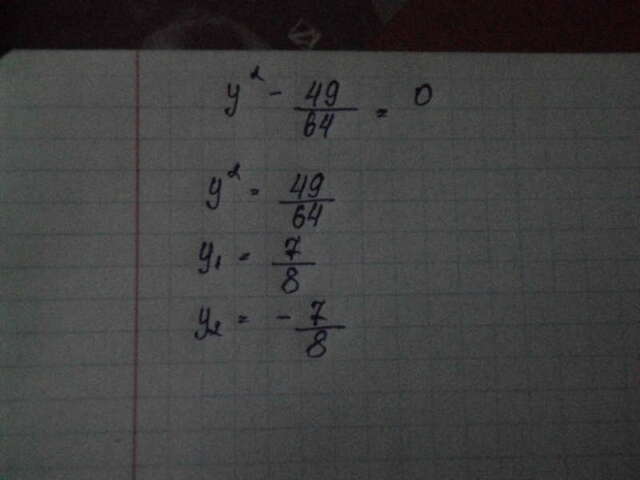 y² - 49/64 = 0
y² = 49/64
y₁ = 7/8
y₂ = - 7/8